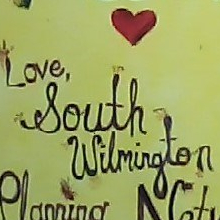 Love,
South
Wilmington
Planning